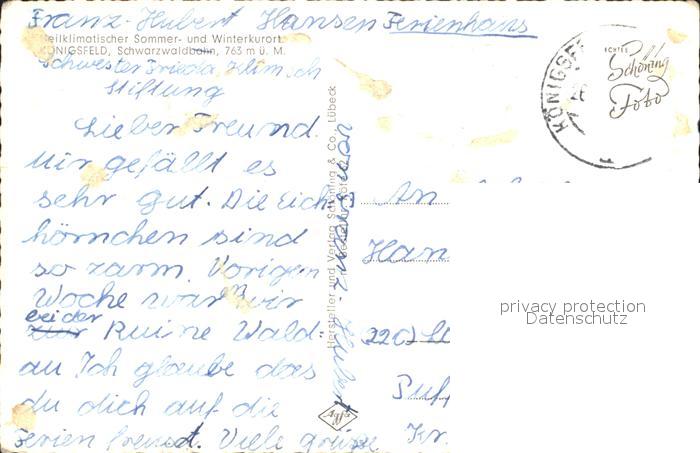 Franz-Hubert Hansen Ferienhaus
Heilklimatischer Sommer- und Winterkurort
KÖNIGSFELD, Schwarzwaldbahn, 763 m ü. M.
Schwester Frieda Klimsch
Stiftung
Lieber Freund
Mir gefällt es
sehr gut. Die Eich
hörnchen sind
so zarm. Vorigen
Woche waren wir
bei der
Ruine Wald-
au Ich glaube das
du dich auf die
Ferien freust. Viele grüsse
von
Hubert
Hersteller und Verlag Schöning & Co., Lübeck
AGFA
KÖNIGSFE
26
ECHTES
Schöning
Foto
An
Han
220
Kr.
privacy protection
Datenschutz